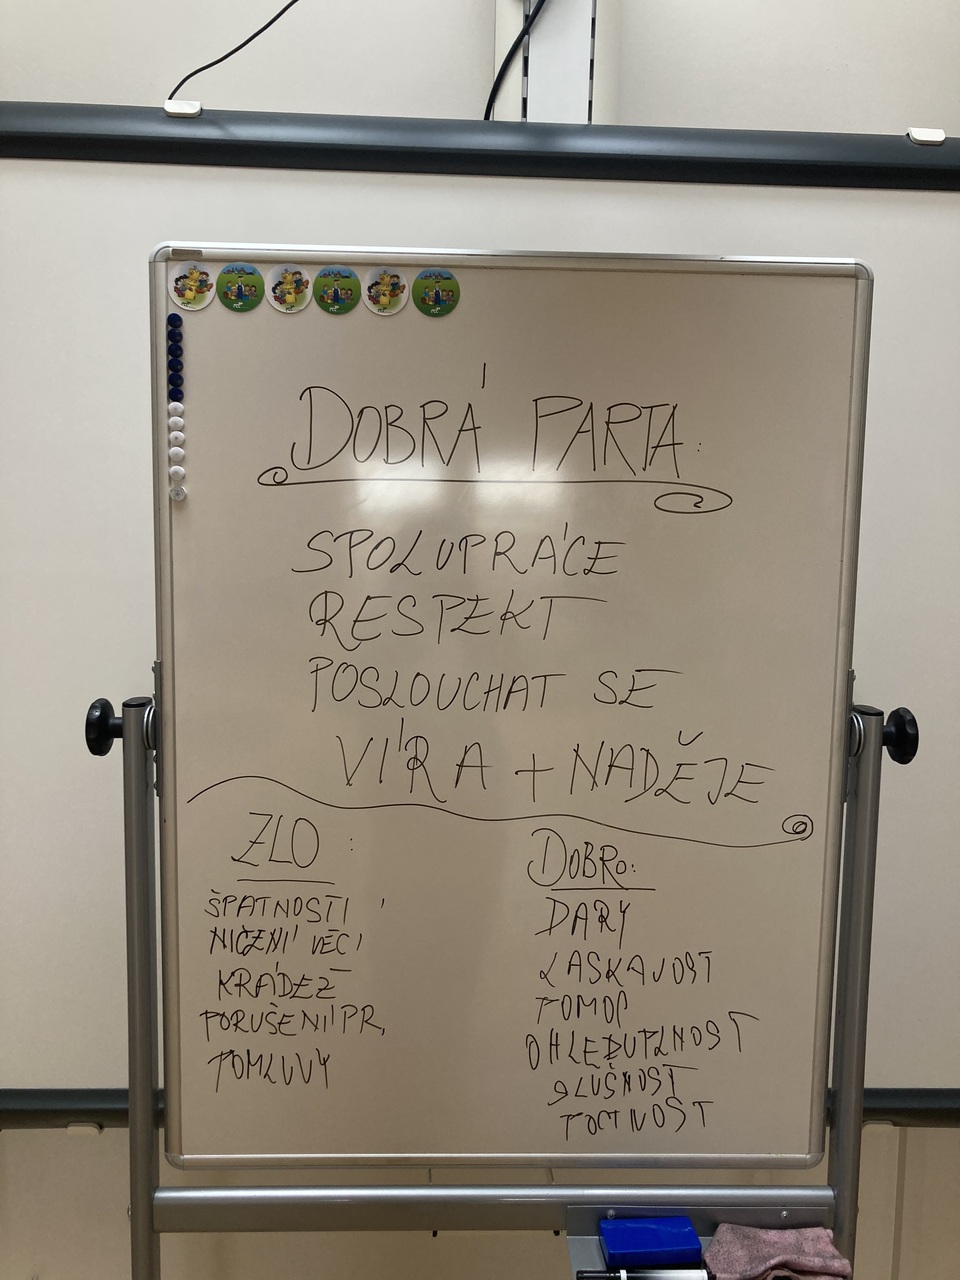 DOBRÁ PARTA:
SPOLUPRÁCE
RESPEKT
POSLOUCHAT SE
VÍRA + NADĚJE
ZLO:
ŠPATNOSTI
NIČENÍ VĚCÍ
KRÁDEŽ
PORUŠENÍ PR.
POMLUVY
DOBRO:
DARY
LASKAVOST
POMOC
OHLEDUPLNOST
SLUŠNOST
POCTNOST